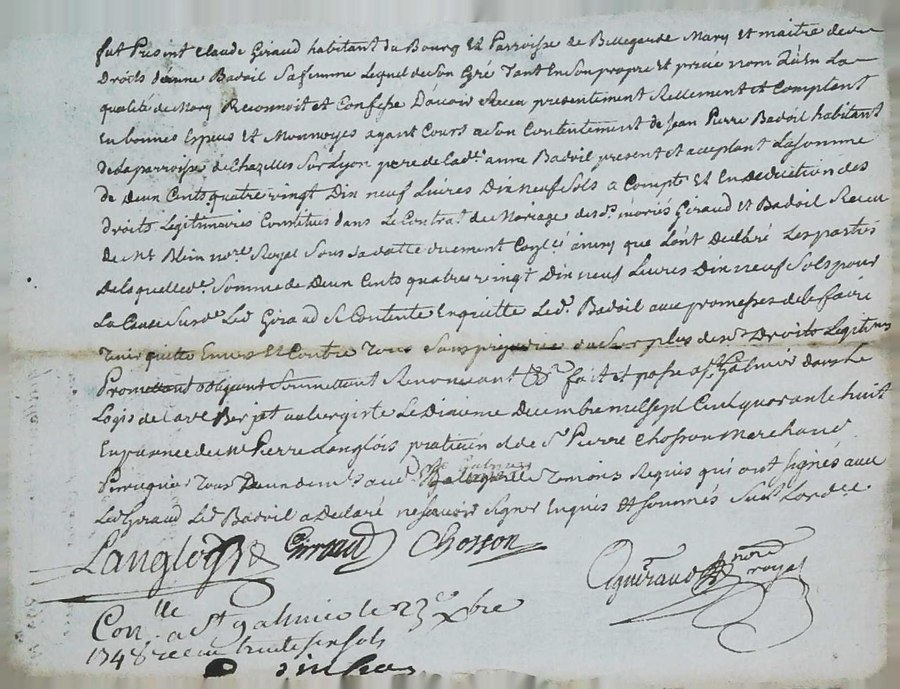 fut Present Claude Giraud habitant du Bourg et Parroisse de Bellegarde Mary et maitre des
Droits danne Badoil Sa femme Lequel de Son Gré Tant En Son propre et privé nom quen La
qualité de Mary Reconnoit et Confesse Davoir Receu presentement Reellement et Comptant
En bonnes Especes et Monnoyes ayant Cours a Son Contentement de Jean Pierre Badoil habitant
de La parroisse de Chazelles Sur Lyon pere de Ladt. anne Badoil present et acceptant La Somme
de deux Cents quatre vingt Dix neuf Livres Dix neuf Sols a Compte Et En Deduction des
droits Legitimaires Constitués dans Le Contrat de Mariage desd. mariés Giraud et Badoil Receu
De Me Blein nore. Royal Sous Sa datte duement Conlé. ainsy que Lont Declaré Les parties
De Laquelle de. Somme de Deux Cents quatre vingt Dix neuf Livres Dix neuf Sols pour
La Cause Susde. Led. Giraud Se Contente En quitte Led. Badoil avec promesses de le faire
Tenir quitte Envers Et Contre Tous Sans prejudice du Surplus desd. Droits Legitimes
Promettant obligeant Soumettant Renonceant &a. fait et passé a St. Galmier dans Le
Logis de La ve. Berjat aubergiste Le Dixieme Decembre mil Sept Cent quarante huit
En presence de Me Pierre Langlois praticien et de Sr. Pierre Chosson Marchand
Peruquier Tous Deux dem. aud. St. Galmier Temoins Requis qui ont Signés avec
Led. Giraud Led. Badoil a Declaré ne Savoir Signer Enquis Et Sommés Suivt. Lordce.
Langlois Girraud Chosson
nore royal
Conlle a St galmier le 23e xbre
1748 receu trente six sols